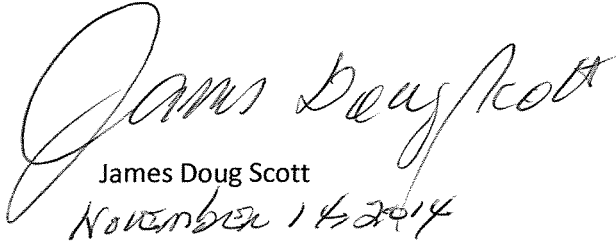 James Doug Scott
James Doug Scott
November 14, 2014